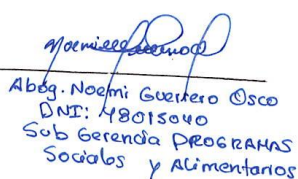 Abog. Noemi Guerrero Osco
DNI: 48015040
Sub Gerencia PROGRAMAS
Sociales y Alimentarios